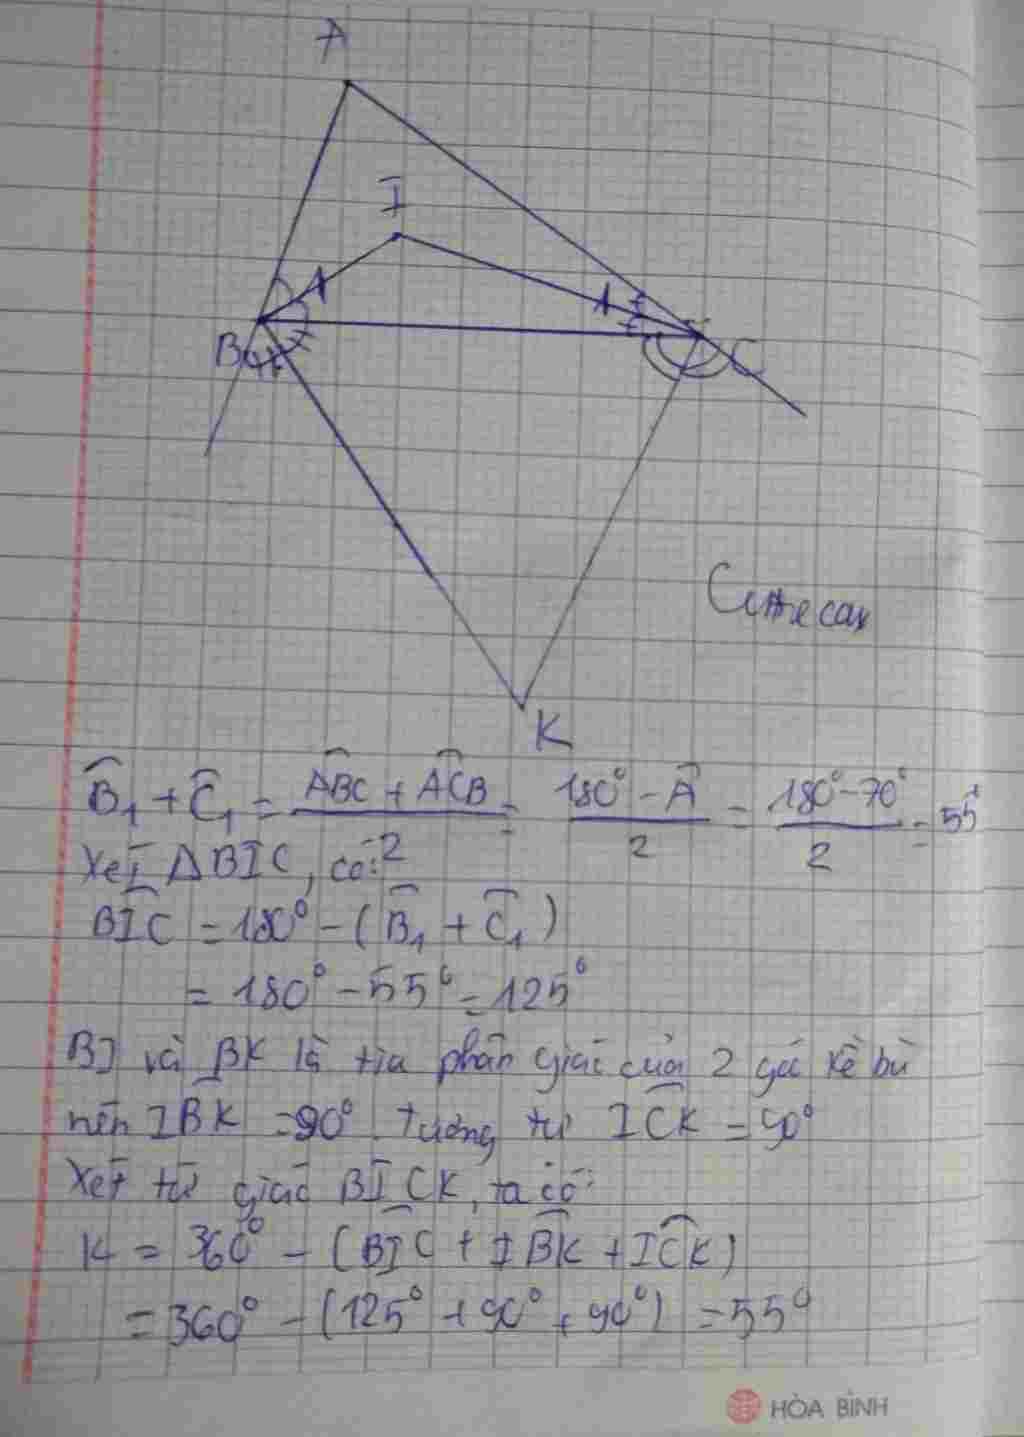 A
I
1
1
B
C
Cuthecan
K
B̂₁ + Ĉ₁ = (ABC + ACB)/2 = (180° - Â)/2 = (180° - 70°)/2 = 55°
Xét ΔBIC, có:
BIC = 180° - (B̂₁ + Ĉ₁)
= 180° - 55° = 125°
BI và BK là tia phân giác của 2 góc kề bù
nên IBK = 90°. Tương tự ICK = 90°
Xét tứ giác BICK, ta có:
K = 360° - (BIC + IBK + ICK)
= 360° - (125° + 90° + 90°) = 55°
HÒA BÌNH